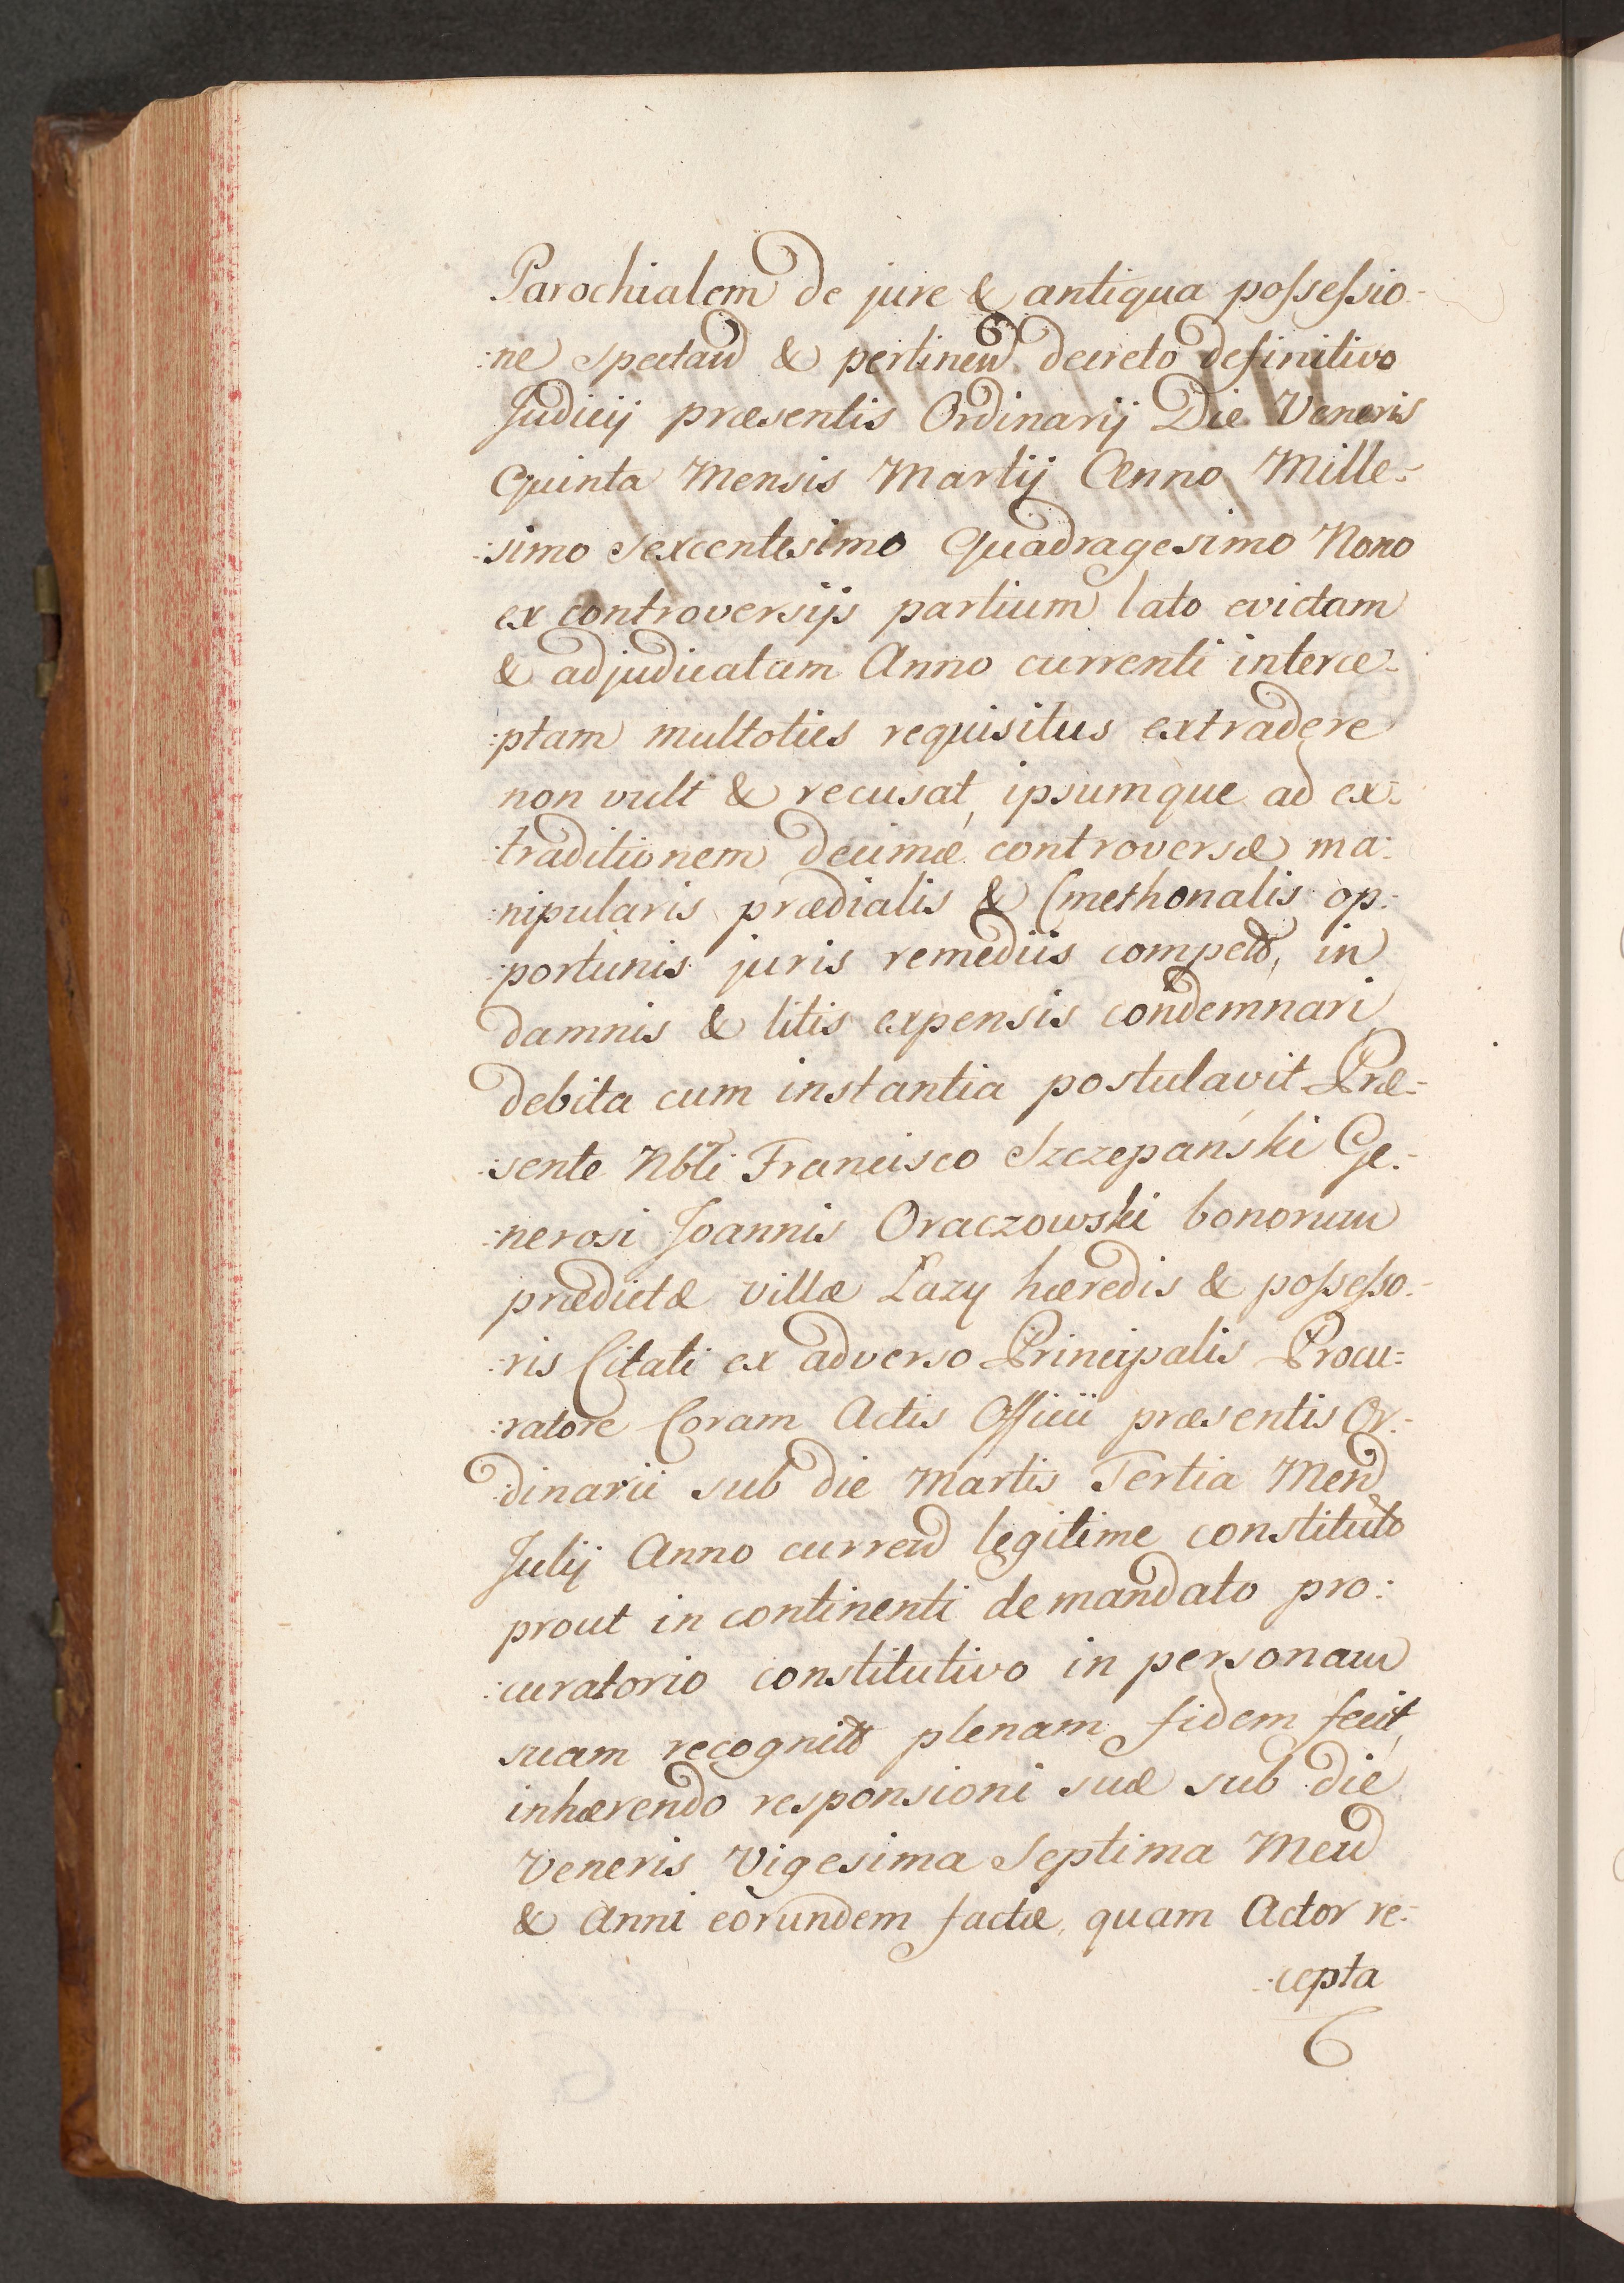 Parochialem de jure & antiqua possessio-
:ne spectand & pertinend decreto definitivo
Judicij præsentis Ordinarij Die Veneris
Quinta Mensis Martij Anno Mille-
:simo Sexcentesimo Quadragesimo Nono
ex controversijs partium lato evictam
& adjudicatam Anno currenti interce-
:ptam multoties requisitus extradere
non vult & recusat, ipsumque ad ex-
:traditionem decimæ controversæ ma:
:nipularis prædialis & Cmethonalis op:
:portunis juris remediis compell, in
damnis & litis expensis condemnari
debita cum instantia postulavit Præ-
:sente Nbli Francisco Szczepański Ge:
:nerosi Joannis Oraczowski bonorum
prædictæ villæ Łazy hæredis & possesso-
:ris Citati ex adverso Principalis Procu-
:ratore Coram Actis Officii præsentis Or-
:dinarii sub die Martis Tertia Mens
Julij Anno currend legitime constituto
prout in continenti de mandato pro:
:curatorio constitutivo in personam
suam recognito plenam fidem fecit,
inhærendo responsioni suæ sub die
Veneris Vigesima Septima Mens
& Anni eorundem factæ, quam Actor re-
:cepta